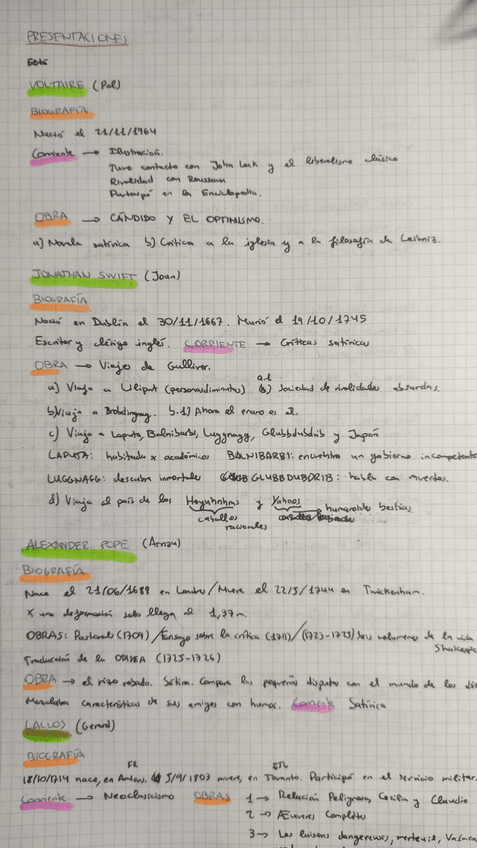 PRESENTACIONES
VOLTAIRE (Pol)
BIOGRAFÍA
Nació el 21/11/1964
Corriente → Ilustración.
Tuvo contacto con John Lock y el liberalismo clásico
Rivalidad con Rousseau
Participó en la Enciclopedia.
OBRA → CÁNDIDO Y EL OPTIMISMO.
a) Novela satírica b) Crítica a la iglesia y a la filosofía de Leibniz.
JONATHAN SWIFT (Joan)
BIOGRAFÍA
Nació en Dublín el 30/11/1667. Murió el 19/10/1745
Escritor y clérigo inglés. CORRIENTE → Críticas satíricas
OBRA → Viajes de Gulliver.
a) Viaja a Liliput (personas diminutas) a.1) sociedad de rivalidades absurdas.
b) Viaja a Brobdingnag. b.1) Ahora el enano es él.
c) Viaja a Laputa, Balnibarbi, Luggnagg, Glubbdubdrib y Japón
LAPUTA: habitada x académicos BALNIBARBI: encuentra un gobierno incompetente
LUGGNAGG: descubre inmortales GLUBBDUBDRIB: habla con muertos.
d) Viaja al país de los Houyhnhnms y Yahoos
caballos racionales humanoides bestias
ALEXANDER POPE (Arnau)
BIOGRAFÍA
Nace el 21/06/1689 en Londres/Muere el 22/5/1744 en Twickenham.
X una deformación solo llega al 1,37m.
OBRAS: Pastorals (1709) /Ensayo sobre la crítica (1711)/(1723-1725) Seis volúmenes de la vida
Traducción de la ODISEA (1725-1726)
OBRA → el rizo robado. Sátira. Compara las pequeñas disputas con el mundo de los
Mezclaba características de sus amigos con humor. Corriente Satírica
LACLOS (Gerard)
BIOGRAFÍA
FR ITL
18/10/1714 nace, en Amiens. 5/9/1803 muere, en Taranto. Participó en el servicio militar.
Corriente → Neoclasicismo OBRAS 1 → Relación Peligrosa, Cecilia y Claudio
2 → Œuvres Complète
3 → Les liaisons dangereuses, merteuil,